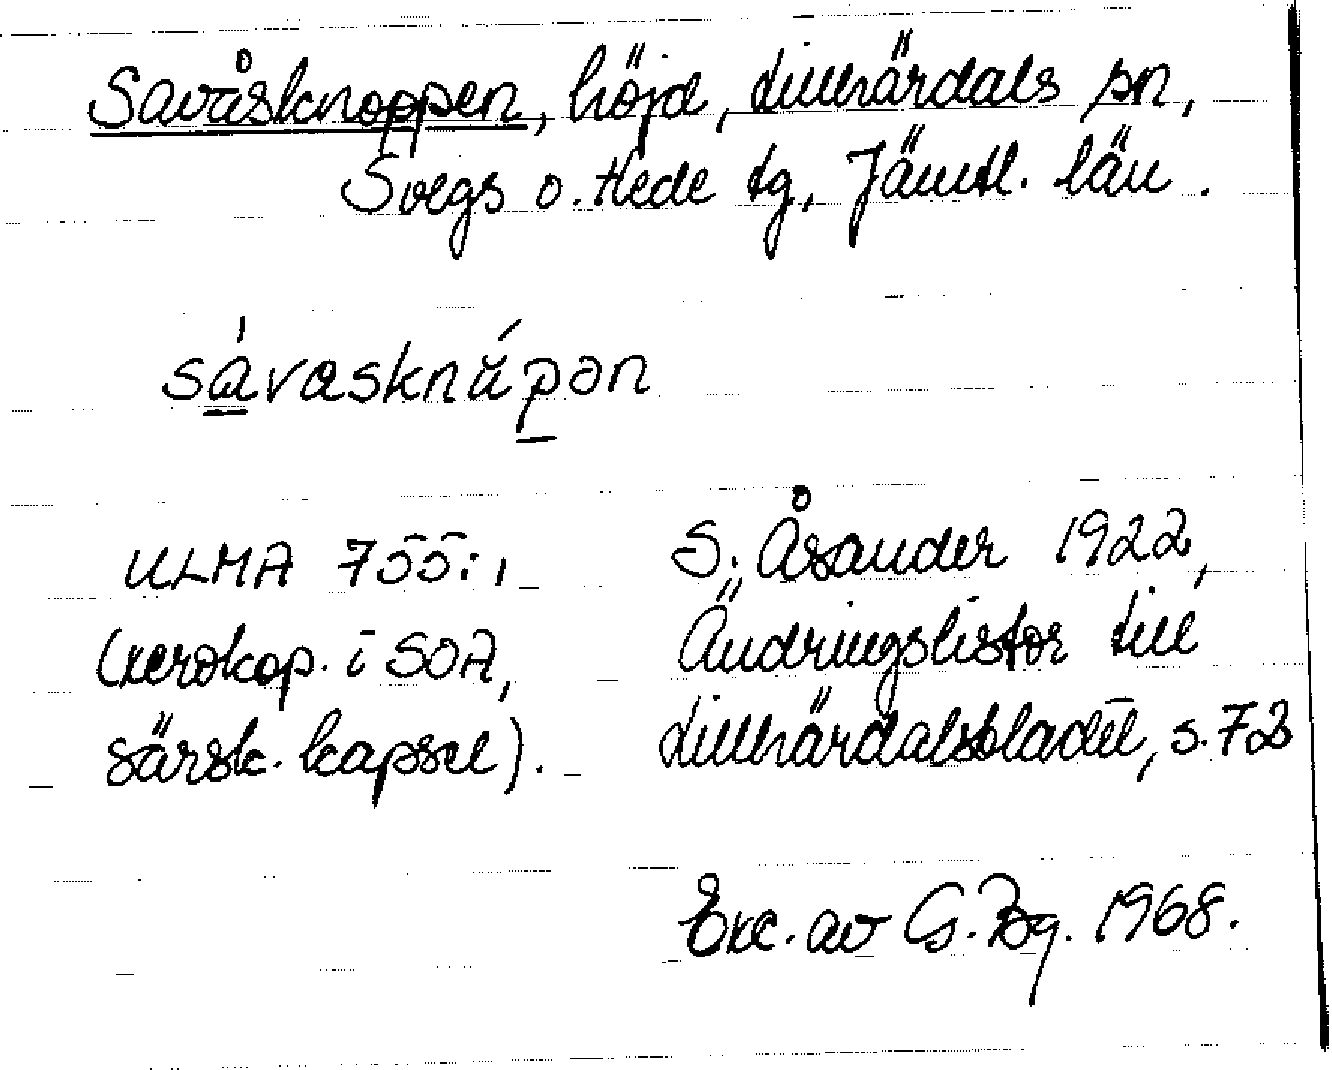 Savåsknoppen, höjd, Lillhärdals sn,
Svegs o. Hede tg, Jämtl. län.
sávasknǘpən
ULMA 755:1
(xerokop. i SOA,
särsk. kapsel).
S. Åsander 1922,
Ändringslistor till
Lillhärdalsbladet, s. 72
Exc. av G. Bg. 1968.